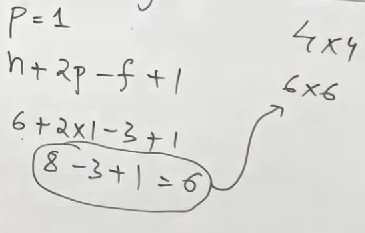 p = 1
n + 2p - f + 1
6 + 2x1 - 3 + 1
8 - 3 + 1 = 6
4 x 4
6 x 6